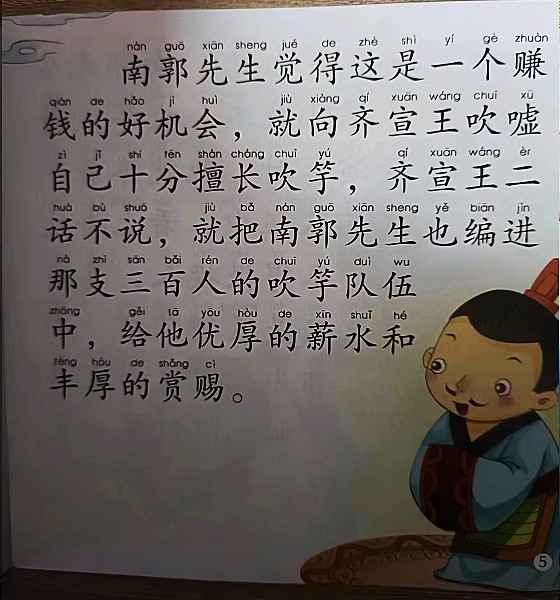 nán guō xiān sheng jué de zhè shì yí gè zhuàn
南郭先生觉得这是一个赚
qián de hǎo jī huì jiù xiàng qí xuān wáng chuī xū
钱的好机会，就向齐宣王吹嘘
zì jǐ shí fēn shàn cháng chuī yú qí xuān wáng èr
自己十分擅长吹竽，齐宣王二
huà bù shuō jiù bǎ nán guō xiān sheng yě biān jìn
话不说，就把南郭先生也编进
nà zhī sān bǎi rén de chuī yú duì wu
那支三百人的吹竽队伍
zhōng gěi tā yōu hòu de xīn shuǐ hé
中，给他优厚的薪水和
fēng hòu de shǎng cì
丰厚的赏赐。
5